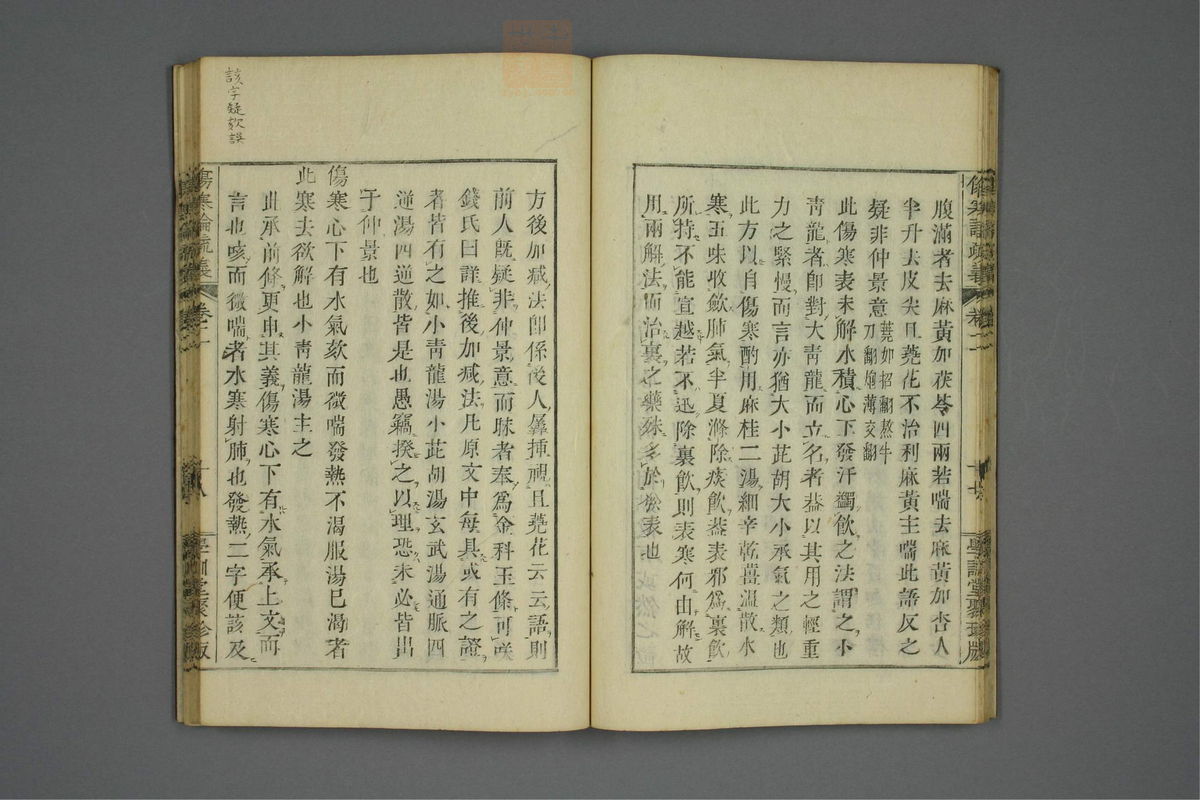 腹滿者去麻黃加茯苓四兩若喘去麻黃加杏人
半升去皮尖且蕘花不治利麻黃主喘此語反之
疑非仲景意
蕘如招翻熬牛
刀翻炮薄交翻
此傷寒表未解水積心下發汗蠲飮之法謂之小
靑龍者卽對大靑龍而立名者葢以其用之輕重
力之緊慢而言亦猶大小茈胡大小承氣之類也
此方以自傷寒酌用麻桂二湯細辛乾薑溫散水
寒五味收斂肺氣半夏滌除痰飮葢表邪爲裏飮
所持不能宣越若不迅除裏飮則表寒何由解故
用兩解法而治裏之藥殊多於於表也
方後加減法卽係後人羼插視且蕘花云云語則
前人旣疑非仲景意而眛者奉爲金科玉條可咲
錢氏曰詳推後加減法凡原文中每具或有之證
者皆有之如小靑龍湯小茈胡湯玄武湯通脈四
逆湯四逆散皆是也愚竊揆之以理恐未必皆出
于仲景也
傷寒心下有水氣欬而微喘發熱不渴服湯已渴者
此寒去欲解也小靑龍湯主之
此承前條更申其義傷寒心下有水氣承上文而
言也咳而微喘者水寒射肺也發熱二字便該及
該字疑欬誤
傷寒論疏義
卷二
十八
學訓堂聚珍版